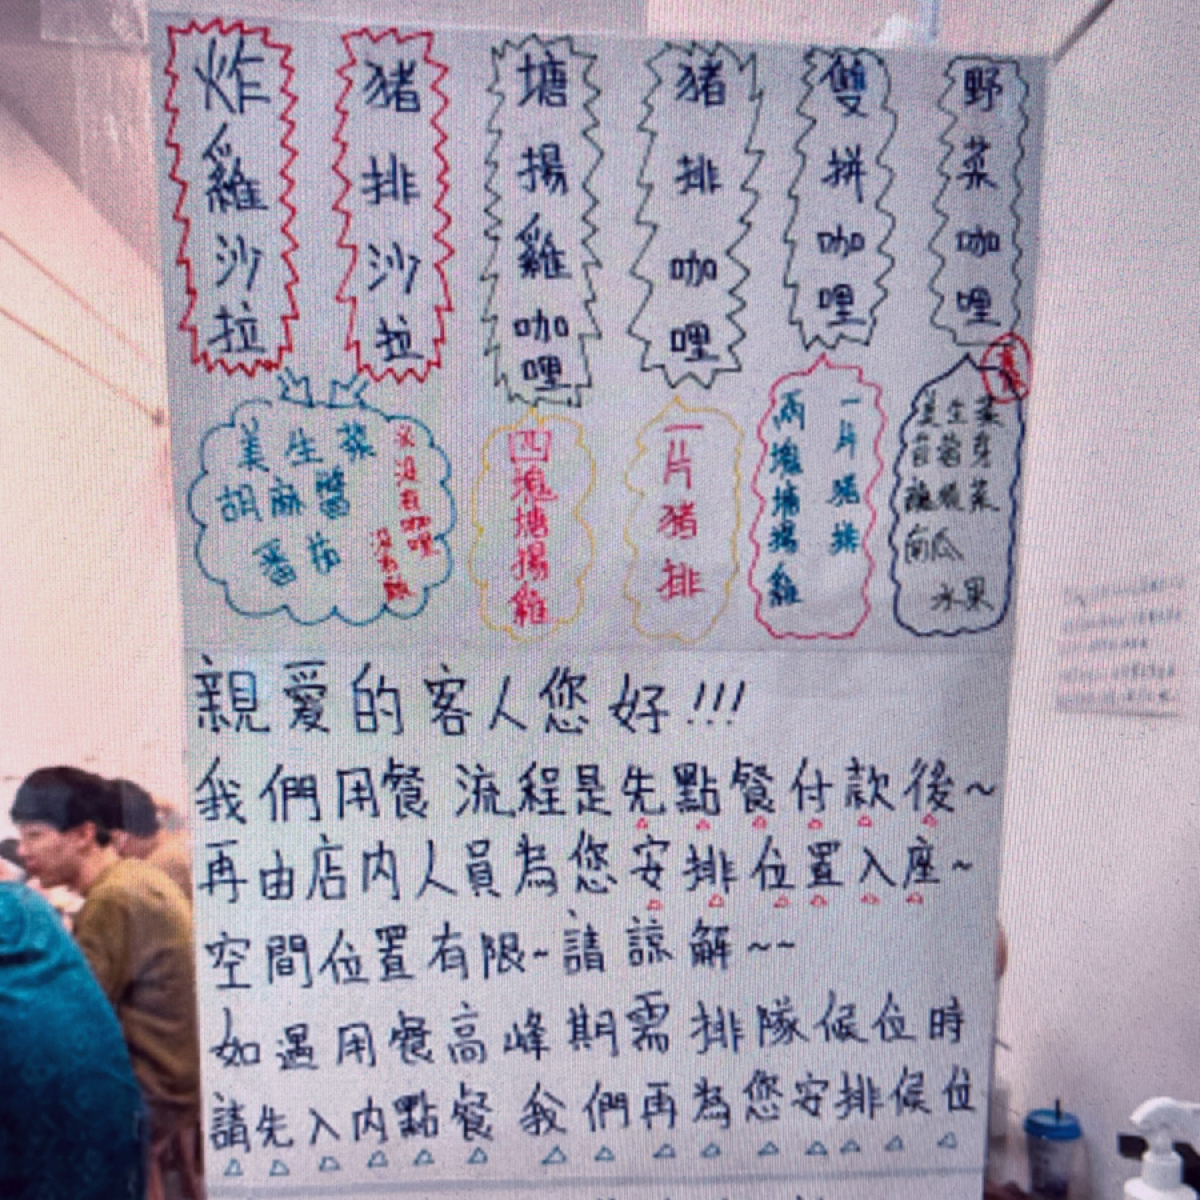 炸雞沙拉
豬排沙拉
塘揚雞咖哩
豬排咖哩
雙拼咖哩
野菜咖哩
美生菜
胡麻醬
番茄
沒有咖哩
沒有飯
四塊塘揚雞
一片豬排
一片豬排
兩塊塘揚雞
美生菜
苜蓿芽
南瓜
水果
親愛的客人您好!!!
我們用餐流程是先點餐付款後~
再由店內人員為您安排位置入座~
空間位置有限~請諒解~~
如遇用餐高峰期需排隊候位時
請先入內點餐 我們再為您安排候位